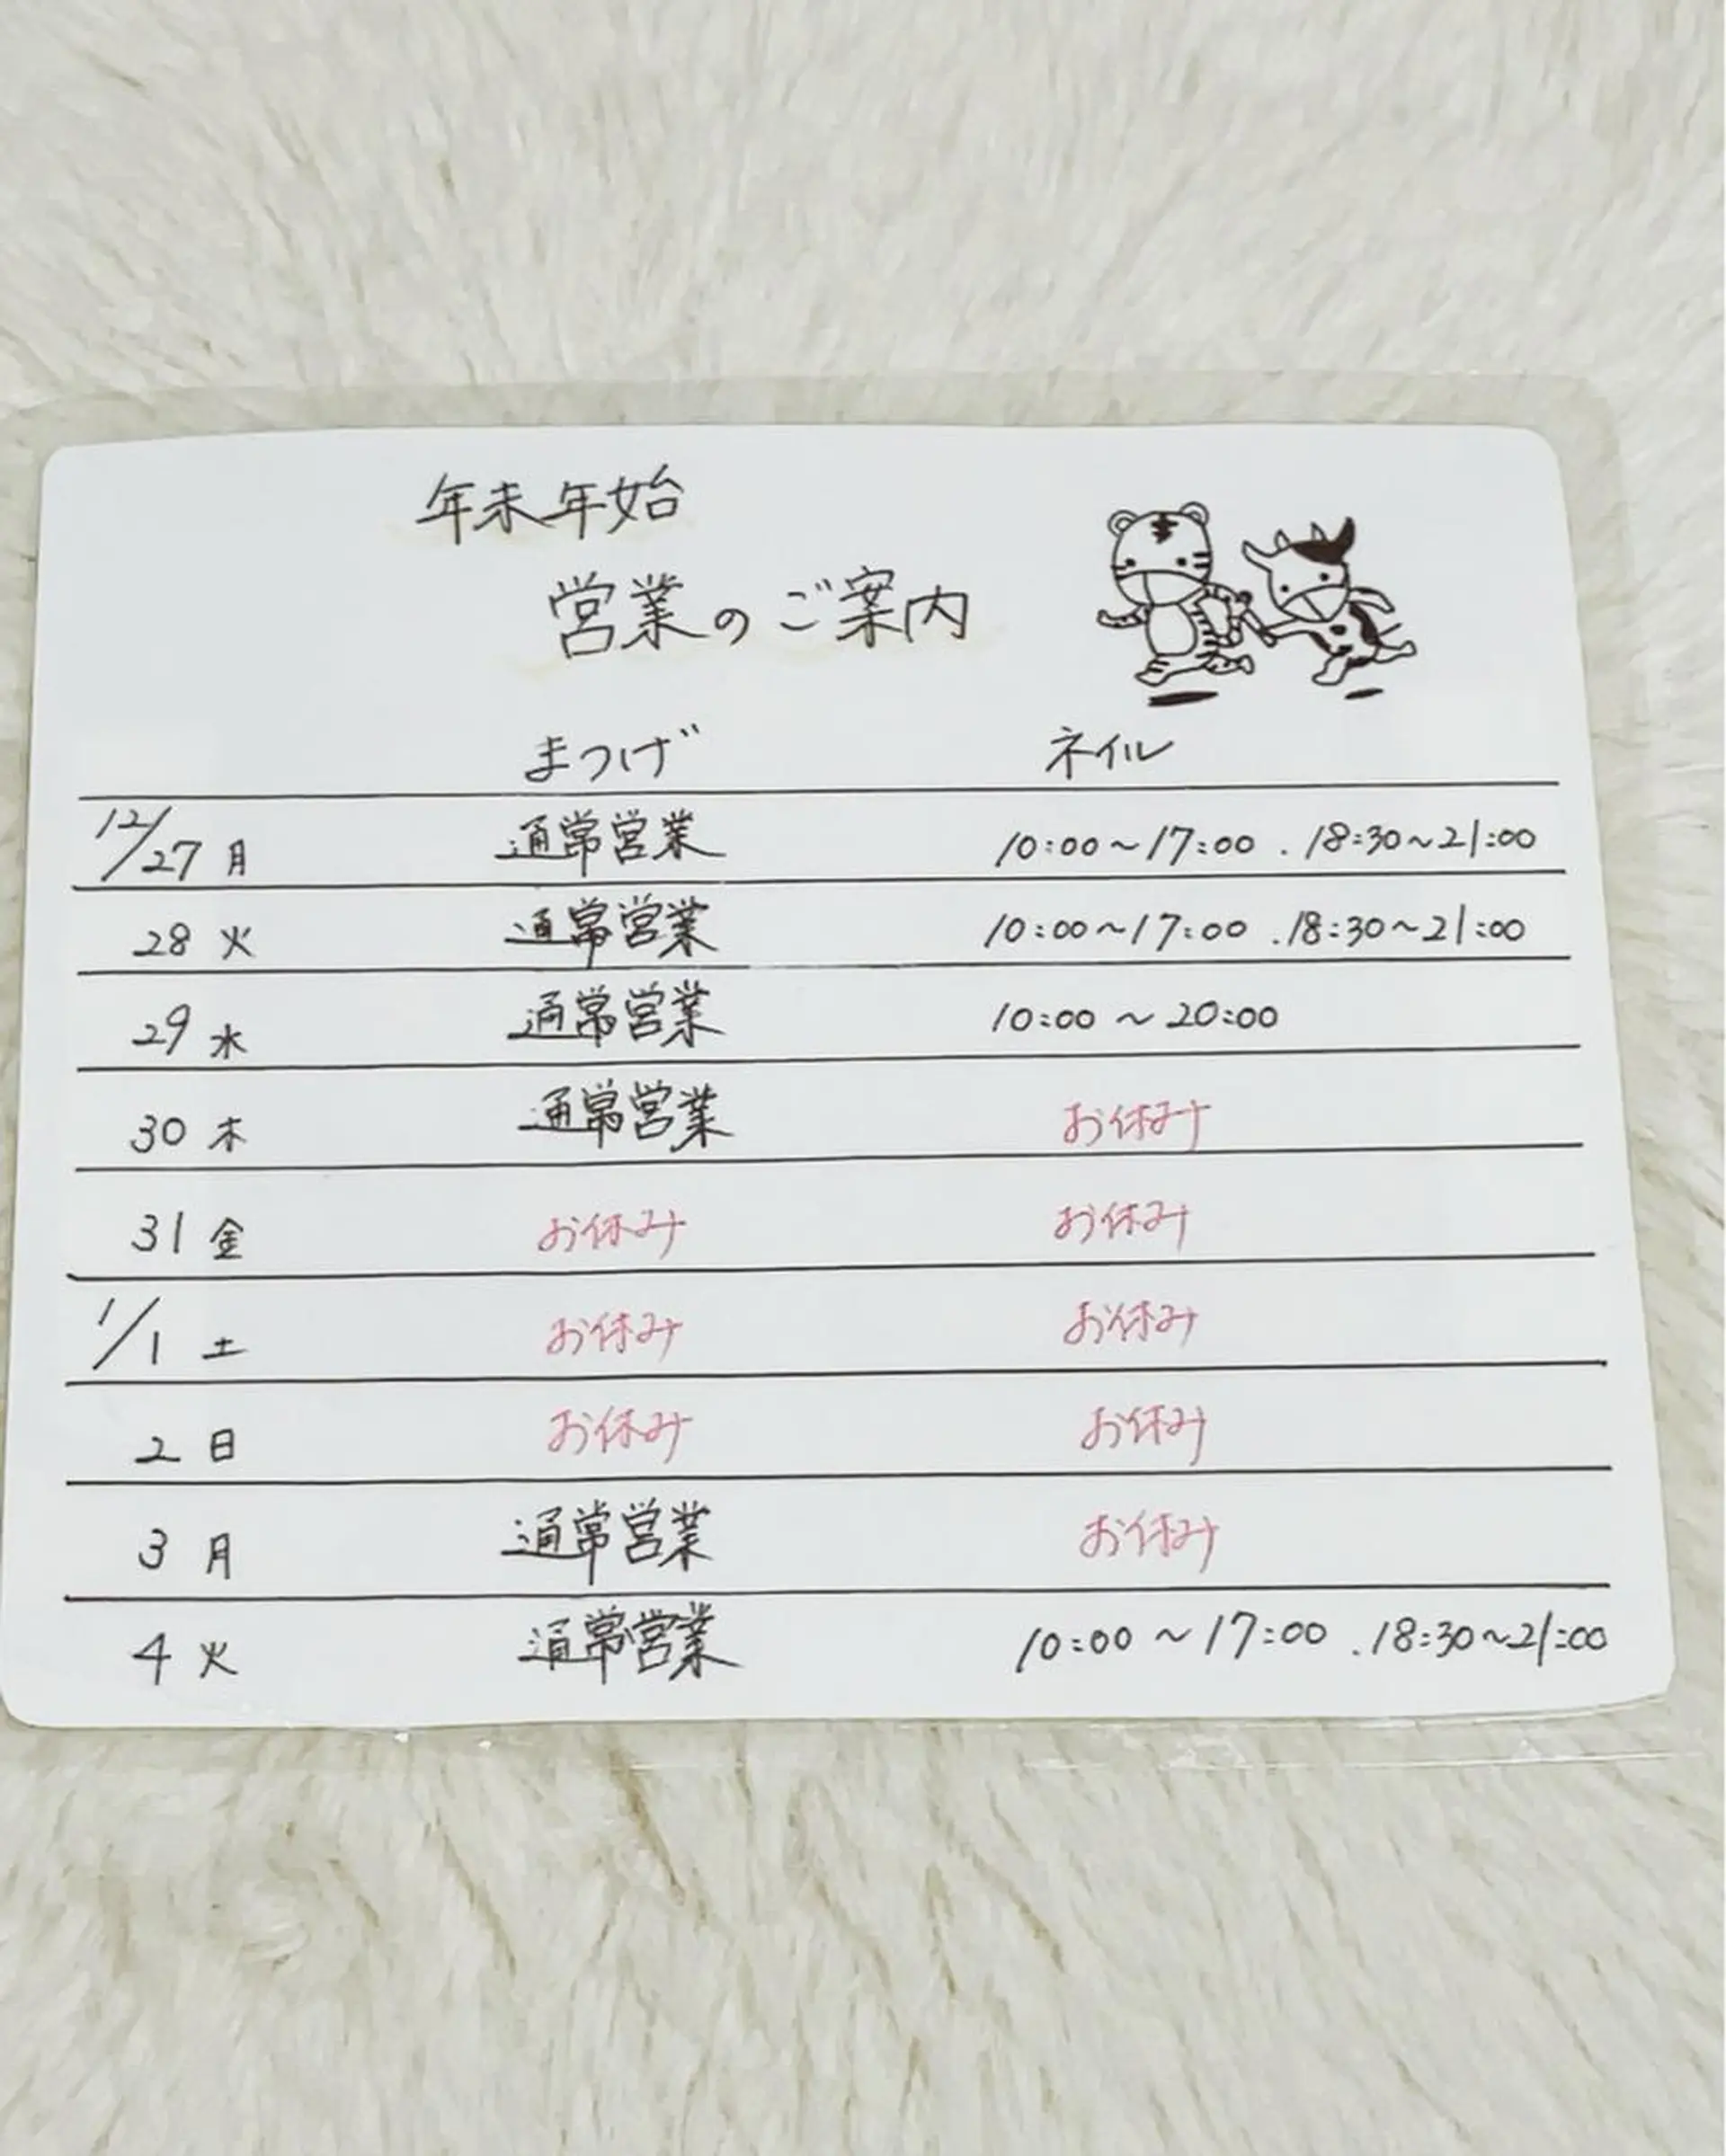 年末年始
営業のご案内
まつげ ネイル
12/27 月 通常営業 10:00~17:00 . 18:30~21:00
28 火 通常営業 10:00~17:00 . 18:30~21:00
29 水 通常営業 10:00 ~ 20:00
30 木 通常営業 お休み
31 金 お休み お休み
1/1 土 お休み お休み
2 日 お休み お休み
3 月 通常営業 お休み
4 火 通常営業 10:00 ~ 17:00 . 18:30~21:00